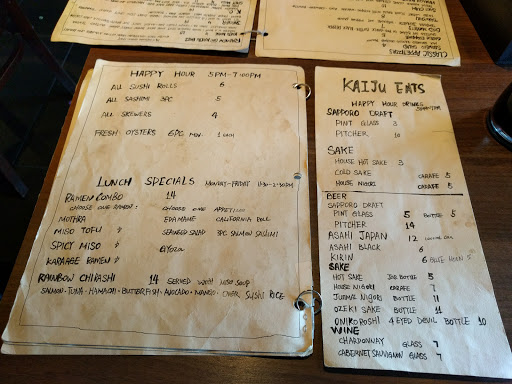 HAPPY HOUR 5PM-7:00PM
ALL SUSHI ROLLS 6
ALL SASHIMI 3PC 5
ALL SKEWERS 4
FRESH OYSTERS 6PC MIN. 1 EACH
LUNCH SPECIALS MONDAY-FRIDAY 11:30-2:30PM
RAMEN COMBO 14
CHOOSE ONE RAMEN: CHOOSE ONE APPETIZER
MOTHRA EDAMAME CALIFORNIA ROLL
MISO TOFU SEAWEED SALAD 3PC SALMON SASHIMI
SPICY MISO GYOZA
KARAAGE RAMEN
RAINBOW CHIRASHI 14 SERVED WITH MISO SOUP
SALMON · TUNA · HAMACHI · BUTTERFISH · AVOCADO · MANGO · OVER SUSHI RICE
KAIJU EATS
HAPPY HOUR DRINKS 5PM-7PM
SAPPORO DRAFT
PINT GLASS 3
PITCHER 10
SAKE
HOUSE HOT SAKE 3
COLD SAKE CARAFE 5
HOUSE NIGORI CARAFE 5
BEER
SAPPORO DRAFT
PINT GLASS 5 BOTTLE 5
PITCHER 14
ASAHI JAPAN 12
ASAHI BLACK 6
KIRIN 6 BLUE MOON 5
SAKE
HOT SAKE 5
HOUSE NIGORI CARAFE 7
JUNMAI NIGORI BOTTLE 11
OZEKI SAKE BOTTLE 11
ONIKOROSHI 4 EYED DEVIL BOTTLE 10
WINE
CHARDONNAY GLASS 7
CABERNET SAUVIGNON GLASS 7
CLASSIC APPETIZERS